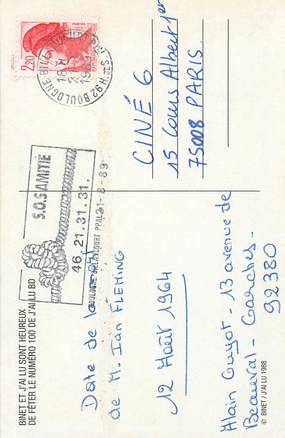 CINÉ 6
15 Cours Albert 1er
75008 PARIS.
Date de la mort
de M. Ian FLEMING
12 Août 1964
Alain Guyot - 13 avenue de
Beauval - Garches -
92380
S.O.S AMITIÉ
46.21.31.31.
2,20
92 BOULOGNE BILLANCOURT
18 H
1989
-8-89
BINET ET J'AI LU SONT HEUREUX
DE FÊTER LE NUMÉRO 100 DE J'AI LU BD
© BINET / J'AI LU 1988